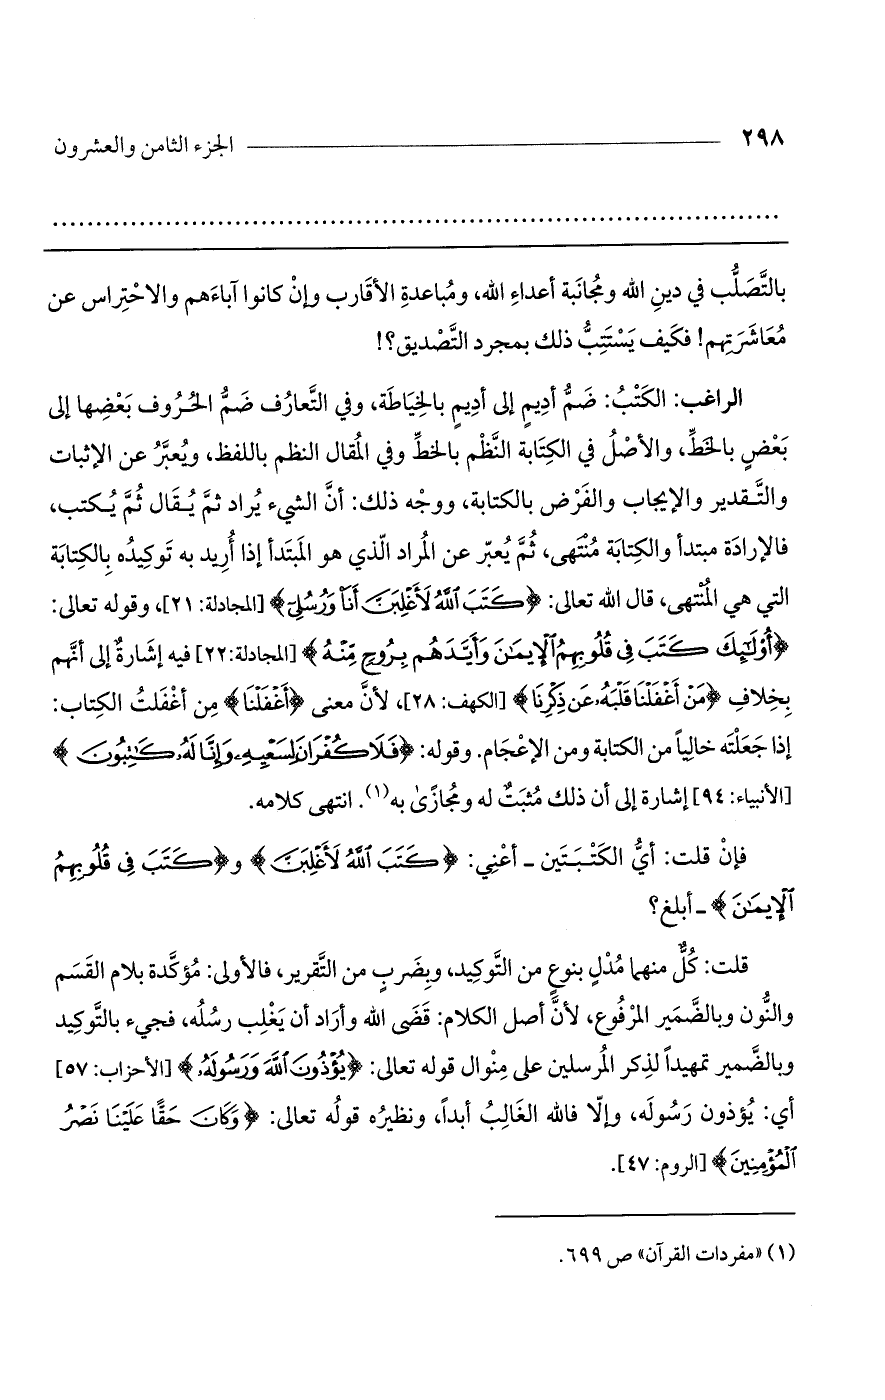 ٢٩٨ الجزء الثامن والعشرون
بالتَّصَلُّب في دينِ الله ومُجانَبة أعداءِ الله، ومُباعدةِ الأقَارب وإنْ كانوا آباءَهم والاحْتِراس عن
مُعَاشَرَتِهم! فكَيف يَسْتَتِبُّ ذلك بمجرد التَّصْديق؟!
الراغب: الكَتْبُ: ضَمُّ أديمٍ إلى أديمٍ بالخِيَاطَة، وفي التَّعارُف ضَمُّ الحُروف بَعْضِها إلى
بَعْضٍ بالخَطِّ، والأصْلُ في الكِتَابة النَّظْم بالخطِّ وفي المُقال النظم باللفظ، ويُعبَّرُ عن الإثبات
والتَّقدير والإيجاب والفَرْض بالكتابة، ووجْه ذلك: أنَّ الشيء يُراد ثمَّ يُقال ثُمَّ يُكتب،
فالإرادَة مبتدأ والكِتابَة مُنْتَهى، ثُمَّ يُعبّر عن المُراد الّذي هو المَبتَدأ إذا أُريد به تَوكيدُه بالكِتابَة
التي هي المُنْتهى، قال الله تعالى: ﴿كَتَبَ ٱللَّهُ لَأَغْلِبَنَّ أَنَا۠ وَرُسُلِىٓ﴾ [المجادلة: ٢١]، وقوله تعالى:
﴿أُوْلَٰٓئِكَ كَتَبَ فِى قُلُوبِهِمُ ٱلْإِيمَٰنَ وَأَيَّدَهُم بِرُوحٍ مِّنْهُ﴾ [المجادلة:٢٢] فيه إشَارةٌ إلى أنَّهم
بخِلافِ ﴿مَنْ أَغْفَلْنَا قَلْبَهُۥ عَن ذِكْرِنَا﴾ [الكهف: ٢٨]، لأنَّ معنى ﴿أَغْفَلْنَا﴾ مِن أغْفَلتُ الكِتاب:
إذا جَعَلْتَه خالياً من الكتابة ومن الإعْجَام. وقوله: ﴿فَلَا كُفْرَانَ لِسَعْيِهِۦ وَإِنَّا لَهُۥ كَٰتِبُونَ﴾
[الأنبياء: ٩٤] إشارة إلى أن ذلك مُثبَتٌ له ومُجازًى به(١). انتهى كلامه.
فإنْ قلت: أيُّ الكَتْبَتَين ـ أعْنِي: ﴿كَتَبَ ٱللَّهُ لَأَغْلِبَنَّ﴾ و﴿كَتَبَ فِى قُلُوبِهِمُ
ٱلْإِيمَٰنَ﴾ ـ أبلغ؟
قلت: كُلٌّ منهما مُدْلٍ بنوعٍ من التَّوكيد، وبِضَربٍ من التَّقرير، فالأولى: مؤكَّدة بلام القَسَم
والنُّون وبالضَّمَير المرْفُوع، لأنَّ أصل الكلام: قَضَى الله وأرَاد أن يَغْلِب رسُلُه، فجيء بالتَّوكيد
وبالضَّمير تمهيداً لذِكر المُرسلين على مِنْوال قوله تعالى: ﴿يُؤْذُونَ ٱللَّهَ وَرَسُولَهُۥ﴾ [الأحزاب: ٥٧]
أي: يُؤذون رَسُولَه، وإلّا فالله الغَالِبُ أبداً، ونظيرُه قولُه تعالى: ﴿وَكَانَ حَقًّا عَلَيْنَا نَصْرُ
ٱلْمُؤْمِنِينَ﴾ [الروم: ٤٧].
(١) «مفردات القرآن» ص ٦٩٩.